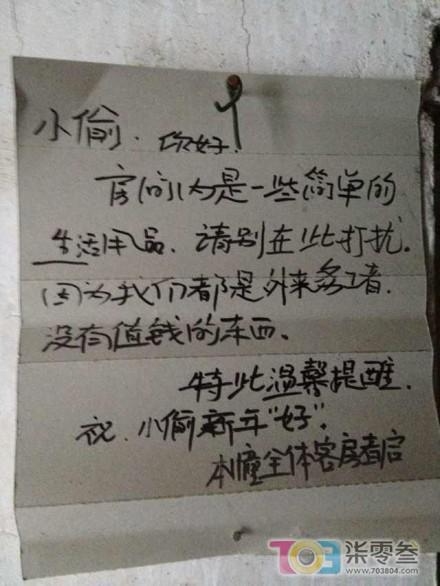 小偷.你好.
房间内是一些简单的
生活用品、请别在此打扰.
因为我们都是外来务工者.
没有值钱的东西.
特此温馨提醒.
祝.小偷新年"好".
本幢全体客房者启
703 柒零叁
www.703804.com